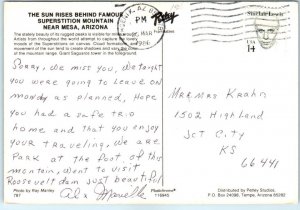 THE SUN RISES BEHIND FAMOUS
SUPERSTITION MOUNTAIN
NEAR MESA, ARIZONA
The stately beauty of its rugged peaks is visible for miles around.
Artists from throughout the world attempt to capture the lovely
moods of the Superstitions on canvas. Cloud formations and the
movement of the sun tend to create shadows and vary the colors of
the mountain. Giant Saguaros tower in the foreground.
PM
MAR
Petley
Sinclair Lewis
14
Sorry, We miss you, We tought
you were going to Leave on
monday as planned, Hope
you had a safe trip
home and that you enjoy
your traveling. We are
Park at the foot of this
mountain, Went to visit
Roosevelt dam just beautiful
Al & Marcella
Mr & Mrs Krahn
1502 Highland
Jct City
KS
66441
Photo by Ray Manley
787
Plastichrome®
116945
Distributed by Petley Studies,
P.O. Box 24098, Tempe, Arizona 85282